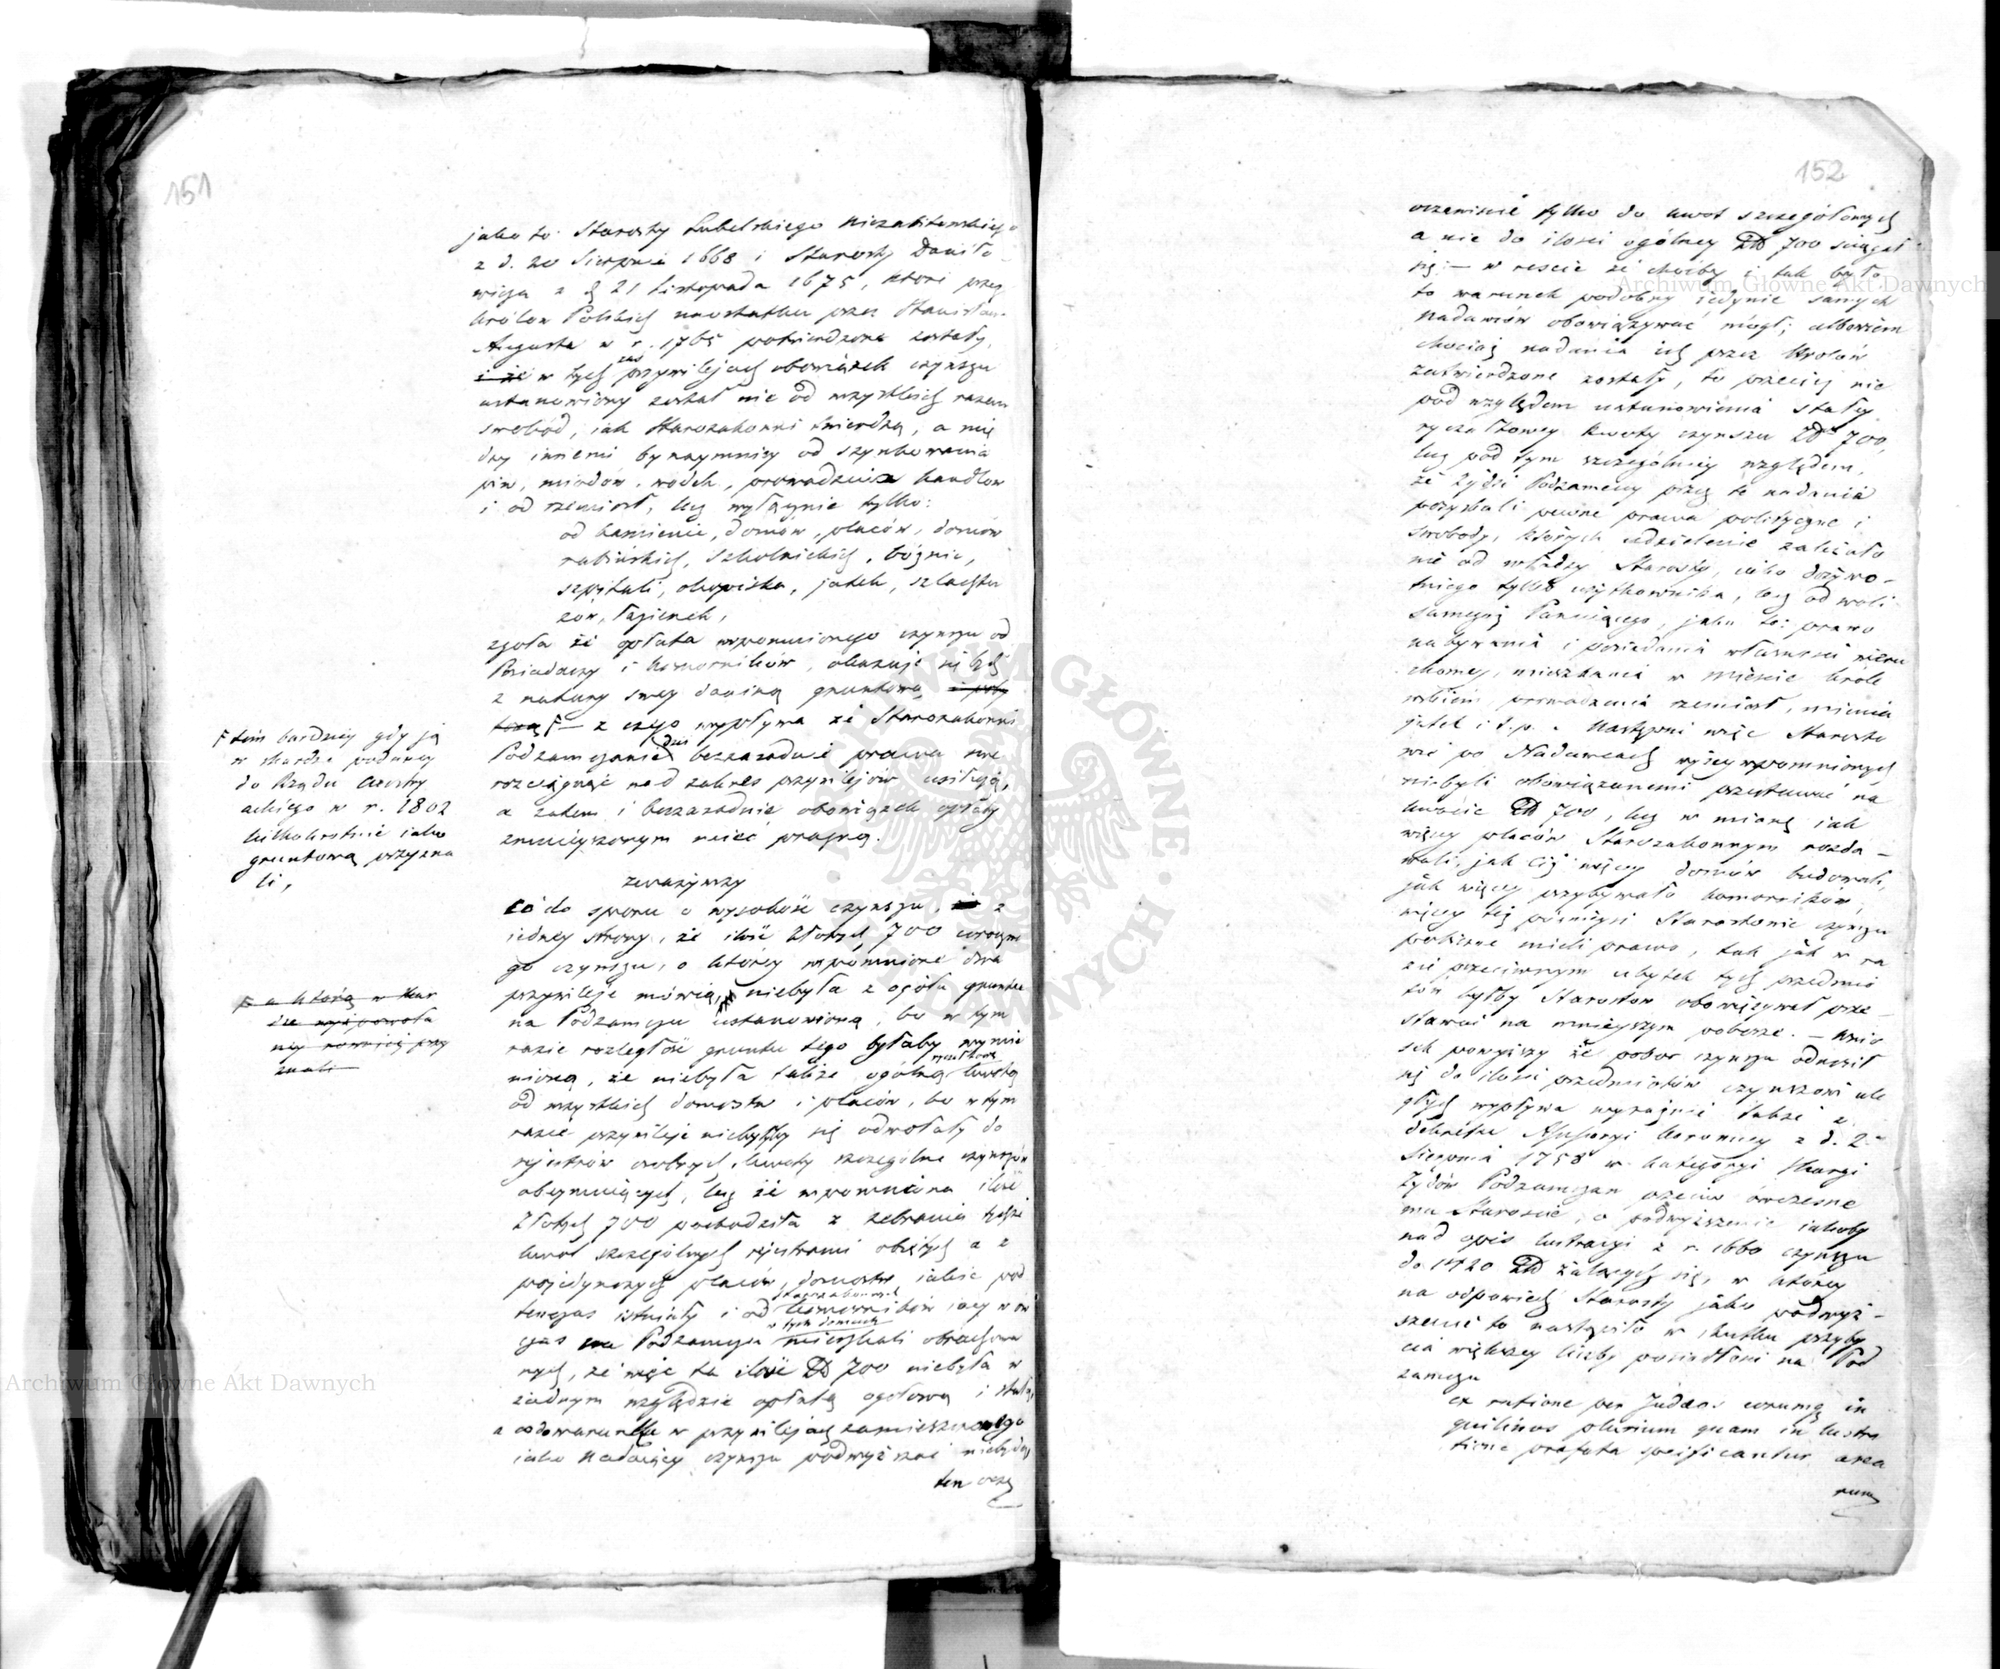 151
jako to Starosty Lubelskiego Niezabitowskiego
z d. 20 Sierpnia 1668 i Starosty Daniło-
wicza z d. 21 Listopada 1675, ktore przez
królow Polskich naostatku przez Stanisława
Augusta w r. 1765 potwierdzone zostały,
i że w tych zaś przywilejach obowiązek czynszu
ustanowiony został nie od wszystkich razem
swobód, iak Starozakonni twierdzą, a mię
dzy innemi bynaymniey od szynkowania
piw, miodów, wódek, prowadzenia handlow
i od rzemiosł, lecz wyłącznie tylko:
od kamienic, domów, placów, domów
rabińskich, szkolnickich, bóżnic,
szpitali, okopiska, jatek, szlachtu
zów, łazienek,
zgoła że opłata wspomnionego czynszu od
Posiadaczy i komorników, okazuje się być
z natury swey daniną gruntową, i przy
toczą F – z czego wypływa że Starozakonni
Podzamczanie dziś bezzasadnie prawa swe
rozciągnąć nad zakres przywilejów usiłują,
a zatem i bezzasadnie obowiązek opłaty
zmnieyszonym mieć pragną.
F tém bardziej gdy ją
w skardze podaney
do Rządu Austry
ackiego w r. 1802
kilkakrotnie iako
gruntową przyzna
li,
zważywszy
Co do sporu o wysokość czynszu, z
iedney strony, że ilość Złotych 700
go czynszu, o którey wspomnione dwa
przywileje mówią, niebyła z ogółu gruntu
na Podzamczu ustanowioną, bo w tym
razie rozległość gruntu tego byłaby wymie
nioną, że niebyła także ogólną ryczałtową kwotą
od wszystkich domostw i placów, bo w tym
razie przywileje niebyłyby się odwołały do
rejestrów osobnych kwoty szczególne czynszów
obeymuiących, lecz że wspomniona ilość
Złotych 700 pochodziła z zebrania tychże
kwot szczególnych rejestrami objętych a z
pojedynczych placów, domostw, iakie pod
tenczas istniały i od starozakonnych komorników iacy w ów
czas na Podzamczu w tych domach mieszkali obrachowa
nych, że więc ta ilość ZP 700 niebyła w
żadnym względzie opłatą ogólową i stałą,
a co do warunku w przywilejach zamieszczonego
iako Nadaiący czynszu podwyższać niebędą
ten ocz
F a którą w skar
dze wyż powoła
ney również przy
znali
152
oczewiście tylko do kwot szczegółowych
a nie do ilości ogólney ZP 700 ściągał
się; – w reszcie że choćby i tak było
to warunek podobny jedynie samych
nadawców obowiązywać mógł; albowiem
chociaż nadania ich przez Królów
zatwierdzone zostały, to przeciej nie
pod względem ustanowienia stałey
ryczałtowey kwoty czynszu ZP 700,
lecz pod tym szczególniey względem,
że Żydzi Podzamczu przez te nadania
pozyskali pewne prawa polityczne i
swobody, których udzielenie zależało
nie od władzy Starosty, iako dożywo-
tniego tylko użytkownika, lecz od woli
samegoż Panuiącego, jako to: prawo
nabywania i posiadania własności nieru
chomey, mieszkania w mieście Króle
wskiém prowadzenia rzemiosł, mienia
jatek i t. p. Następni więc Starosto
wie po Nadawcach wyżey wspomnionych
niebyli obowiązanemi przestawać na
kwocie ZP 700, lecz w miarę iak
więcey placów Starozakonnym rozda-
wali, jak też więcey domów budowali,
jak więcey przybywało komorników,
więcey też późnieysi Starostowie czynszu
pobierać mieli prawo, tak jak w ra
zie przeciwnym ubytek tych przedmio
tów byłby Starostów obowiązywał prze-
stawać na mnieyszym poborze. – Wnio
sek powyższy że pobor czynszu odnosił
się do ilości przedmiotów czynszowi ule
głych wypływa wyraźnie także z
dekretu Assessoryi Koronney z d. 2
Sierpnia 1758 w kategoryi skargi
Żydów Podzamczan przeciw ówczesne
mu Staroście, o podwyższenie iakoby
nad opis lustracyi z r. 1660 czynszu
do 1420 ZP żalących się, w którey
na odpowiedź Starosty jako podwyż-
szenie to nastąpiło w skutku przyby
cia większey liczby posiadłości na Pod
zamczu
ex ratione per Judæos eorumq in
quilinos plurium quam in lustra
tione præfata specificantur area
rum